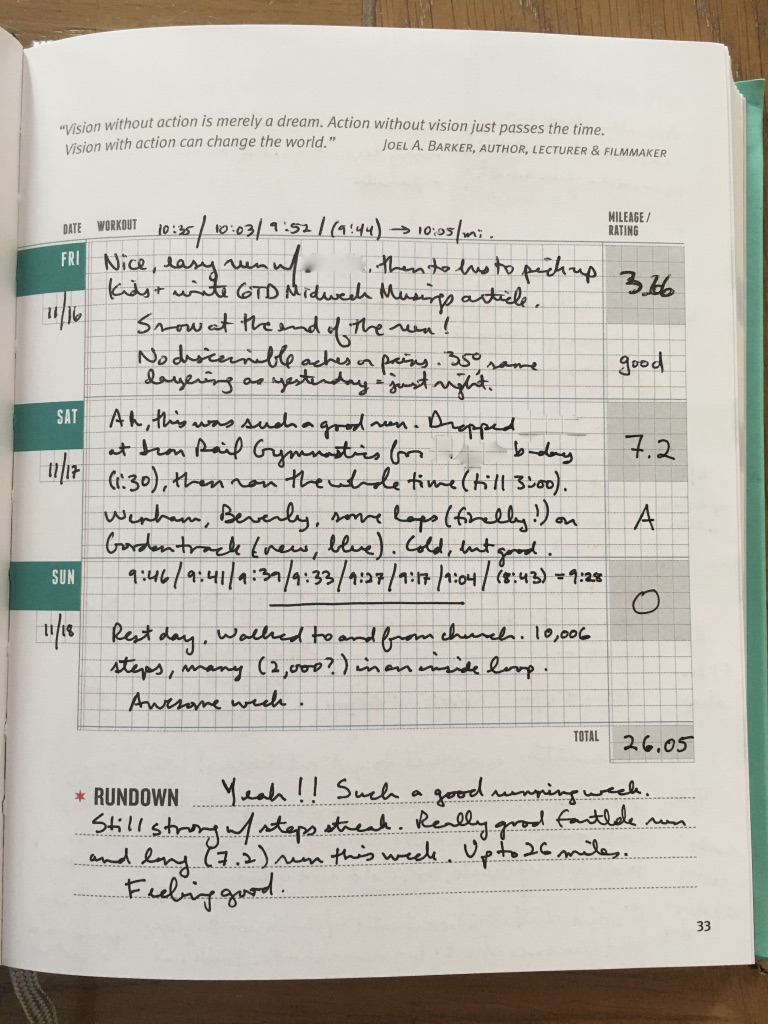 “Vision without action is merely a dream. Action without vision just passes the time.
Vision with action can change the world.” JOEL A. BARKER, AUTHOR, LECTURER & FILMMAKER
DATE WORKOUT 10:35/ 10:03/ 9:52 / (9:44) → 10:05/mi. MILEAGE / RATING
FRI Nice, easy run w/ , then to bus to pick up
kids + write GTD Midweek Musings article.
11/16
Snow at the end of the run!
No discernible aches or pains. 35°, same good
layering as yesterday = just right.
SAT Ah, this was such a good run. Dropped
at Iron Rail Gymnastics for b-day 7.2
11/17 (1:30), then ran the whole time (till 3:00).
Wenham, Beverly, some laps (finally!) on A
Gordon track (new, blue). Cold, but good.
SUN 9:46/9:41/9:39/9:33/9:27/9:17/9:04/ (8:43) = 9:28
0
11/18 Rest day. Walked to and from church. 10,006
steps, many (2,000?) in an inside loop.
Awesome week.
TOTAL 26.05
* RUNDOWN Yeah!! Such a good running week.
Still strong w/ steps streak. Really good fartlek run
and long (7.2) run this week. Up to 26 miles.
Feeling good.
33